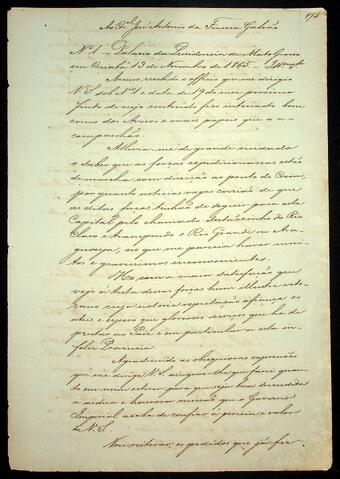 175
Ao Cel José Antonio da Fonseca Galvão
Nº 1 - Palacio da Presidencia de Mato Grosso
em Cuiabá 13 de Novembro de 1865.
Accuso recebido o officio que me dirigio
V.S. sob Nº 1 e data de 19 do mez proximo
findo de cujo contheudo fico inteirado bem
como dos Avisos e mais papeis que o a-
companhão.
Allivia-me de grande cuidado
o saber que as forças expedicionarias estão
de marcha com direcção ao ponto de Coxim,
por quanto noticias vagas corrião de que
as ditas forças tenhão de seguir para esta
Capital pelo chamado Sertãosinho do Rio
Claro e transpondo o Rio Grande ou Ara-
guaya, no que me parecia haver mui-
tos e gravissimos inconvenientes.
He com a maior satisfação que
vejo á testa dessas forças hum illustre vete-
rano cuja notoria reputação afiança os
uteis e espero que gloriosos serviços que ha de
prestar ao Paiz e em particular a esta in-
feliz Provincia.
Agradecendo as obsequiosas expressões
que me dirige V.S. asseguro-lhe que farei quan-
to em mim estiver para que seja bem succedida
a ardua e honrosa missão que o Governo
Imperial acaba de confiar á pericia e valor
de V.S.
Vou reiterar os pedidos que já fiz